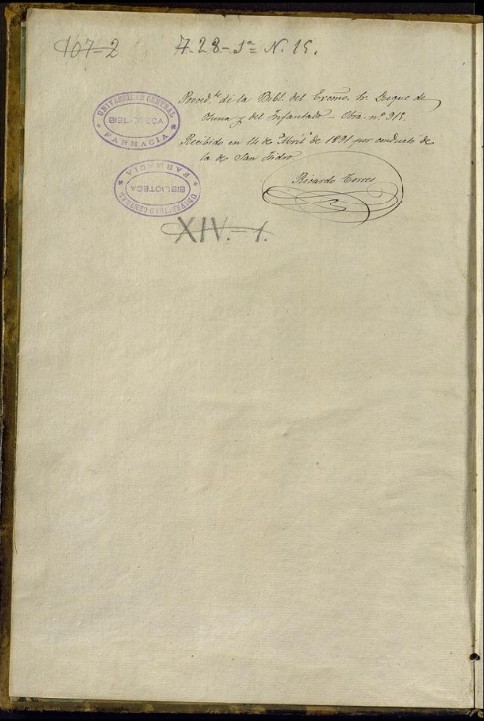 107=2
A-28-5ª N. 15.
UNIVERSIDAD CENTRAL
BIBLIOTECA
FARMACIA
Proced.te de la Bibl. del Excmo. Sr. Duque de
Osuna y del Infantado — Obra nº 915.
Recibido en 14 de Abril de 1891 por conducto de
la de San Isidro
Ricardo Torres
FARMACIA
BIBLIOTECA
UNIVERSIDAD CENTRAL
XIV.-1.